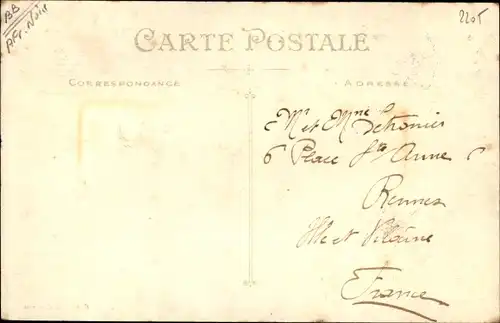 BB
Afr. Noire
2205
CARTE POSTALE
CORRESPONDANCE
ADRESSE
Mr et Mme
6 Place Ste Anne 6
Rennes
Ille et Vilaine
France